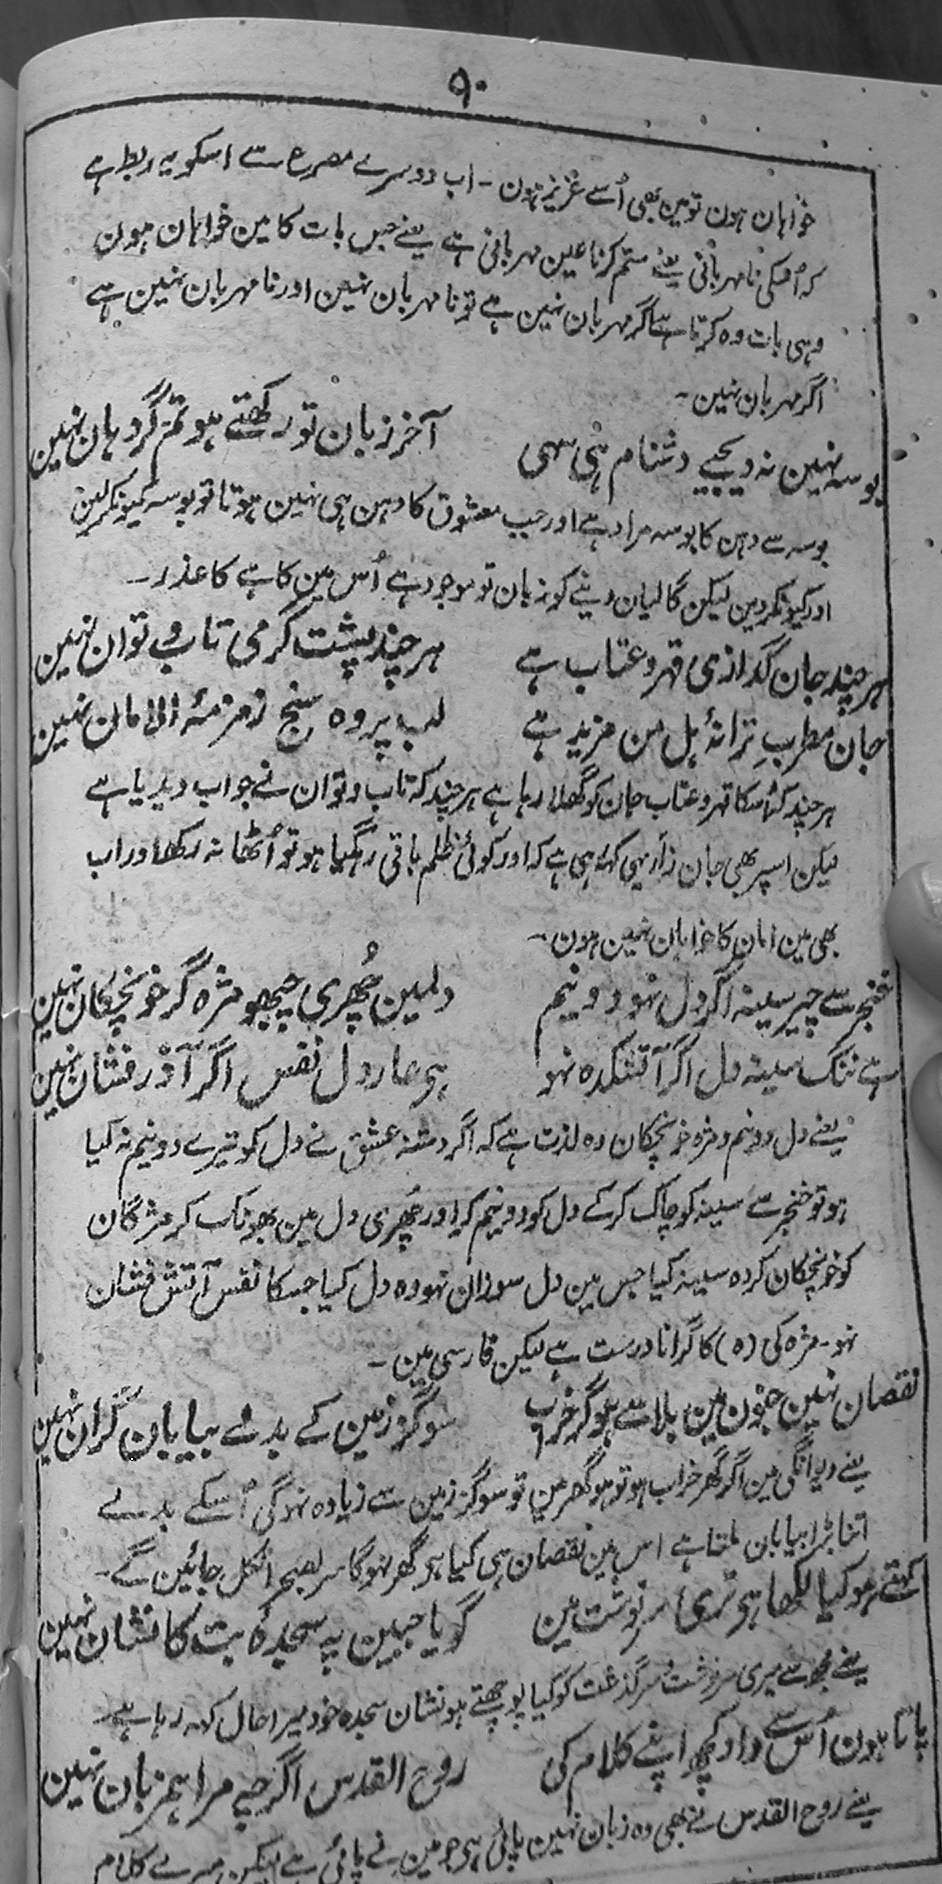 ۹۰
خواہان ہون تو مین بھی اُسے عزیز ہون - اب دوسرے مصرع سے اسکو یہ ربط ہے
کہ اُسکی نامہربانی یعنے ستم کرنا عین مہربانی ہے یعنے جس بات کا مین خواہان ہون
وہی بات وہ کرتا ہے اگر مہربان نہین ہے تو نامہربان نہین اور نامہربان نہین ہے
اگر مہربان نہین -
بوسہ نہین نہ دیجیے دشنام ہی سہی آخر زبان تو رکھتے ہو تم گر دہان نہین
بوسہ سے دہن کا بوسہ مراد ہے اور جب معشوق کا دہن ہی نہین ہوتا تو بوسہ کیونکر لین
اور کیونکر دین لیکن گالیان دینے کو زبان تو موجود ہے اُس مین کاہے کا عذر -
ہر چند جان گدازی قہر و عتاب ہے ہر چند پشت گرمی تاب و توان نہین
جان مطربِ ترانۂ ہل من مزید ہے لب پردہ سنج زمزمۂ الامان نہین
ہر چند کہ اُسکا قہر و عتاب جان کو گھلا رہا ہے ہر چند کہ تاب و توان نے جواب دیدیا ہے
لیکن اسپر بھی جان زار یہی کہتی ہے کہ اور کوئی ظلم باقی رہگیا ہو تو اُٹھا نہ رکھ اور اب
بھی مین امان کا خواہان نہین ہون -
خنجر سے چیر سینہ اگر دل نہو دو نیم دلمین چُھری چبھو مژہ گر خونچکان نہین
ہے ننگ سینہ دل اگر آتشکدہ نہو ہی عار دل نفس اگر آذر فشان نہین
یعنے دل دو نیم و مژہ خونچکان وہ لذت ہے کہ اگر دشنۂ عشق نے دل کو تیرے دو نیم نہ کیا
ہو تو خنجر سے سینہ کو چاک کر کے دل کو دو نیم کر اور چُھری دل مین بھونک کر مژگان
کو خونچکان کر وہ سینہ کیا جس مین دل سوزان نہو وہ دل کیا جسکا نفس آتش فشان
نہو - مژہ کی (ہ) کا گرانا درست ہے لیکن فارسی مین -
نقصان نہین جنون مین بلا سے ہو گر خراب سو گز زمین کے بدلے بیابان گران نہین
یعنے دیوانگی مین اگر گھر خراب ہو تو ہو گھر مین تو سو گز زمین سے زیادہ نہوگی اُسکے بدلے
اتنا بڑا بیابان ملتا ہے اس مین نقصان ہی کیا ہی گھر نہوگا سر بصحرا نکل جائین گے -
کہتے ہو کیا لکھا ہی تری سر نوشت مین گویا جبین پہ سجدۂ بت کا نشان نہین
یعنے مجھسے میری سرنوشت و سرگذشت کو کیا پوچھتے ہو نشان سجدہ خود میرا حال کہہ رہا ہے -
پاتا ہون اُس سے داد کچھ اپنے کلام کی روح القدس اگرچہ مرا ہمزبان نہین
یعنے روح القدس نے بھی وہ زبان نہین پائی ہی جو مین نے پائی ہے لیکن میرے کلام